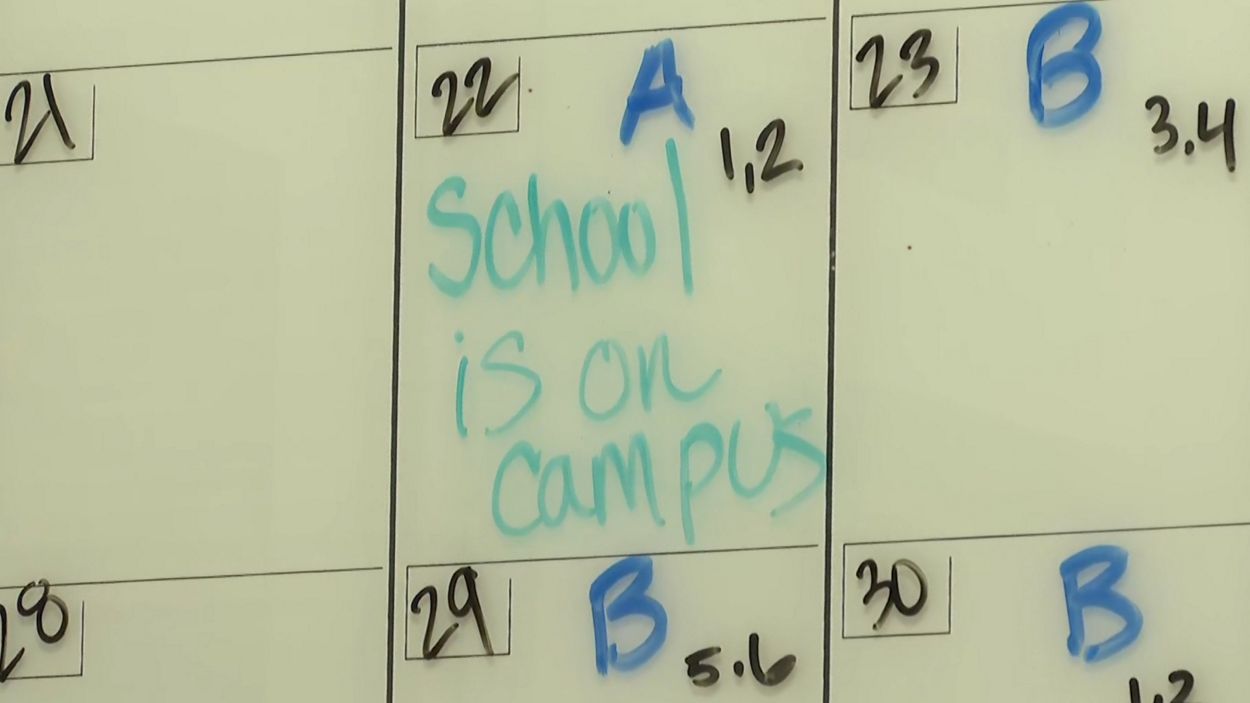 21
22 A
1,2
School
is on
campus
23 B
3.4
28
29 B
5.6
30 B
1,2